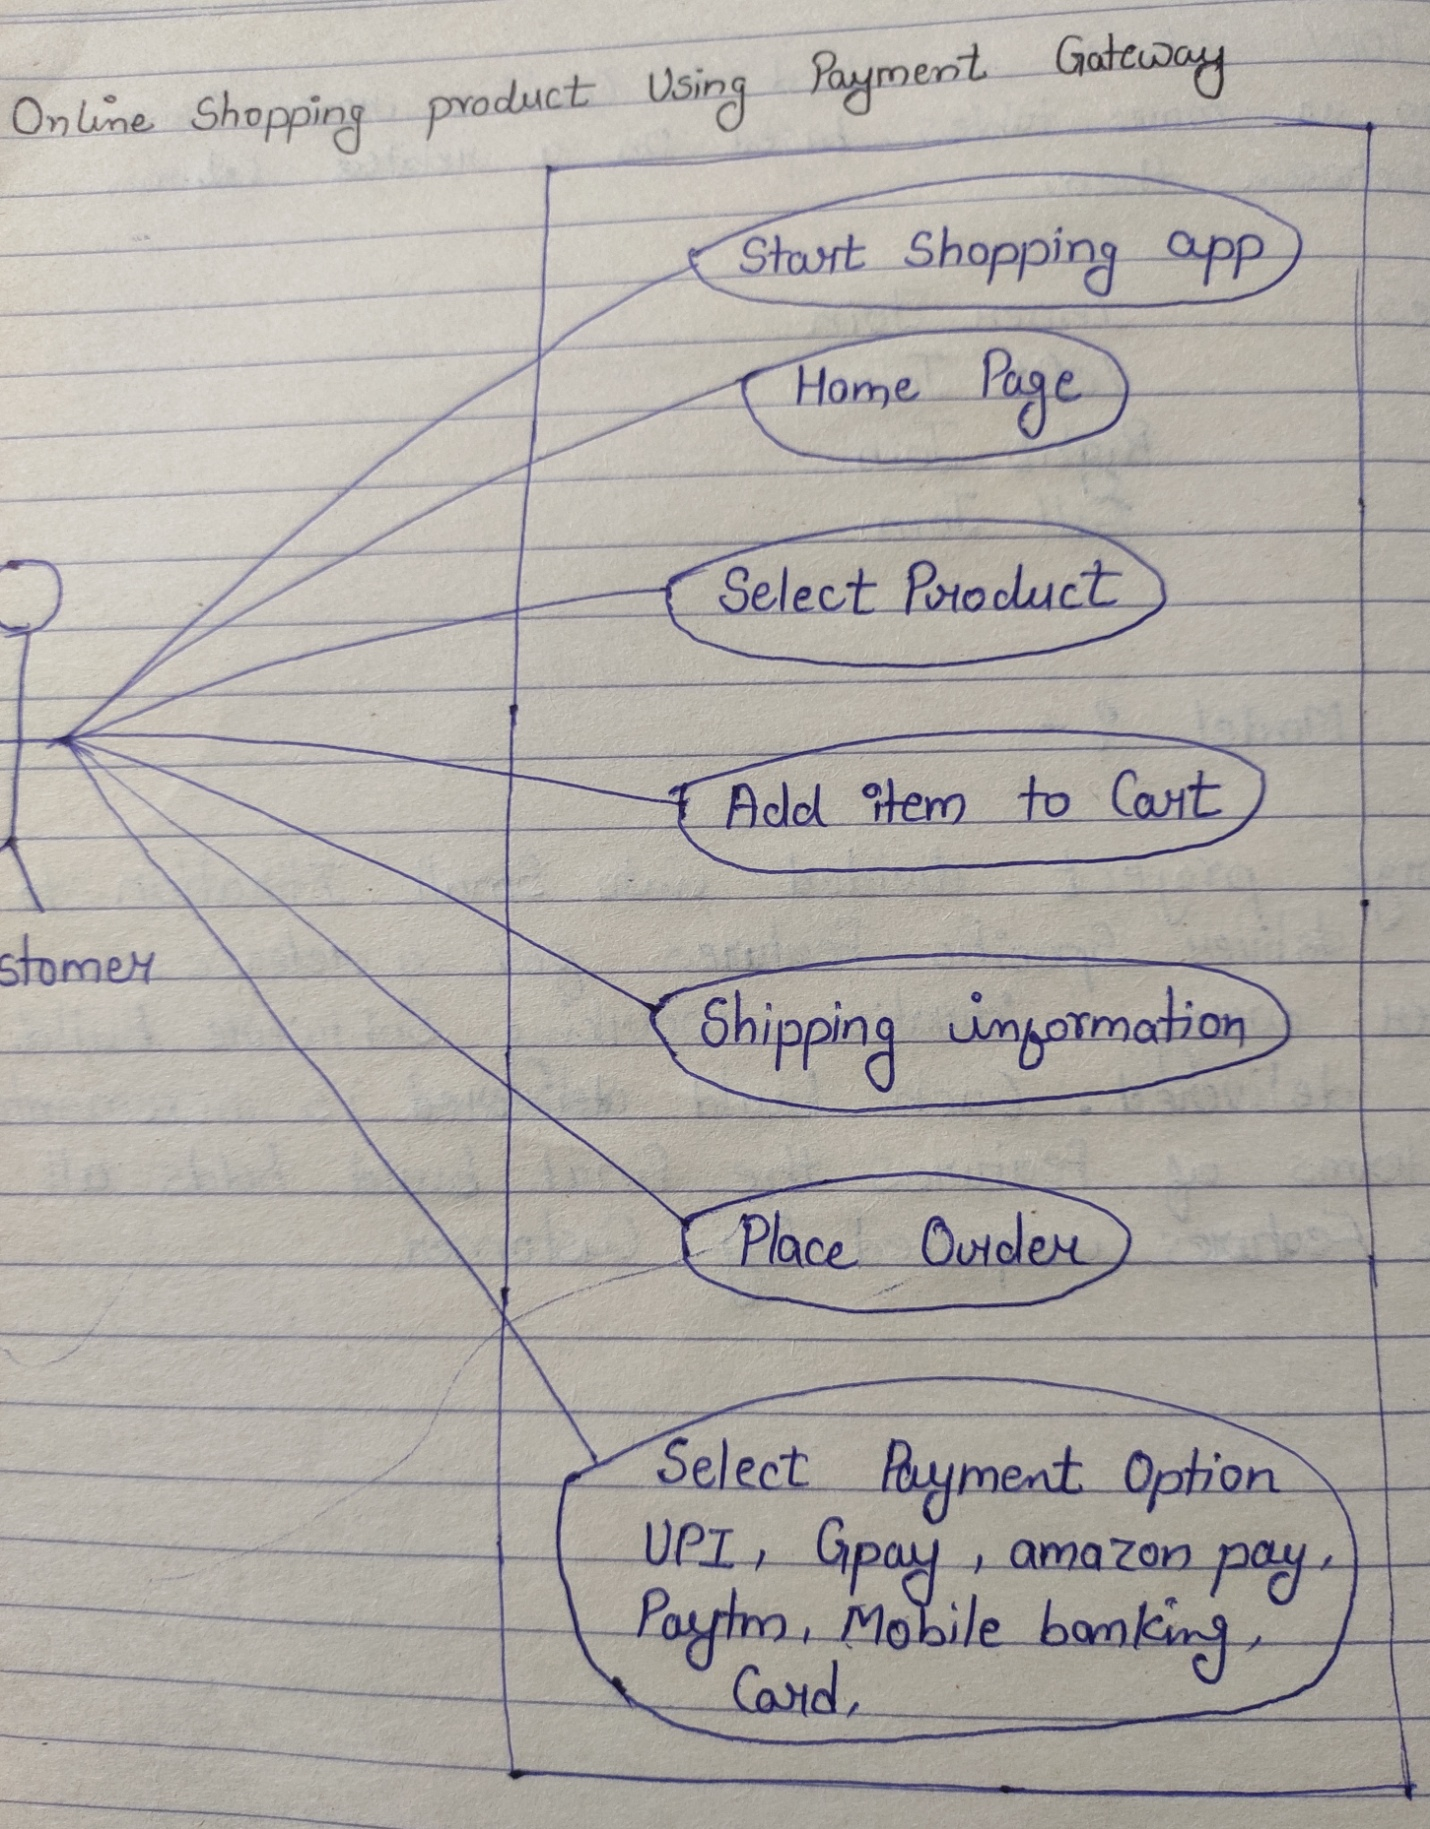 Online Shopping product Using Payment Gateway
Start Shopping app
Home Page
Select Product
Add item to Cart
stomer
Shipping information
Place Order
Select Payment Option
UPI, Gpay, amazon pay,
Paytm, Mobile banking,
Card,